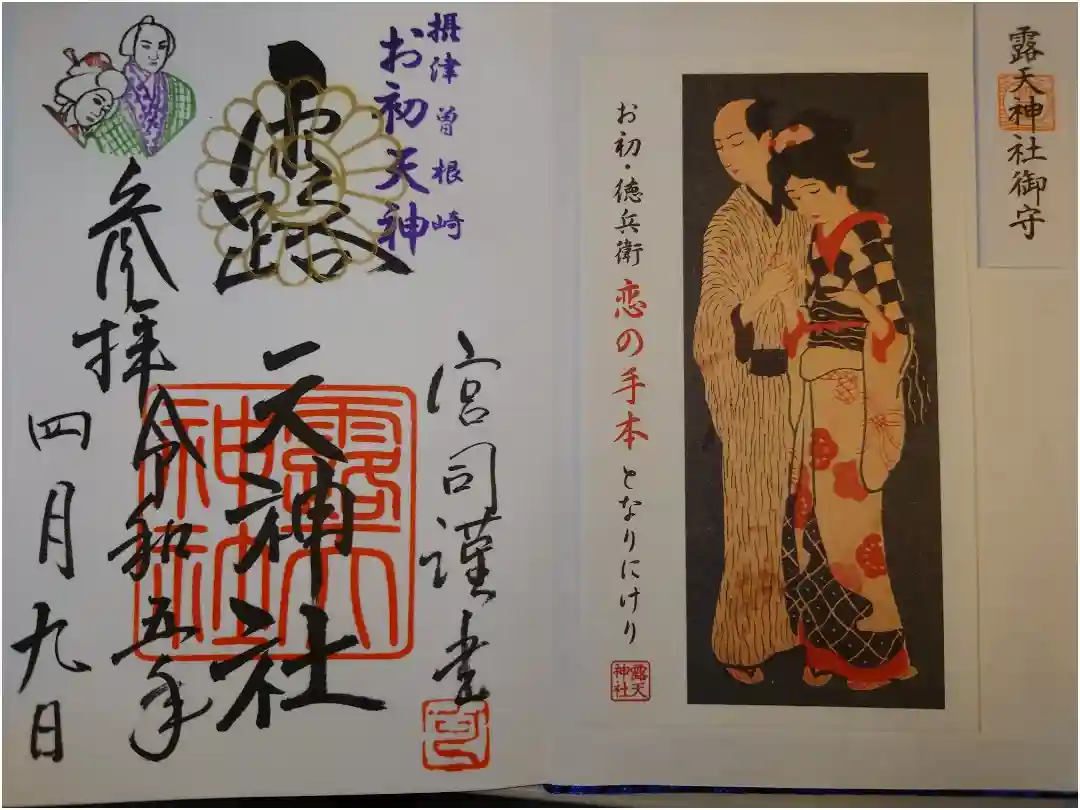 露天神社御守
お初・徳兵衛 恋の手本 となりにけり
露天
神社
摂津 曽根崎
お初天神
宮司謹書
露天神社
露天
神社
参拝令和五年
四月九日